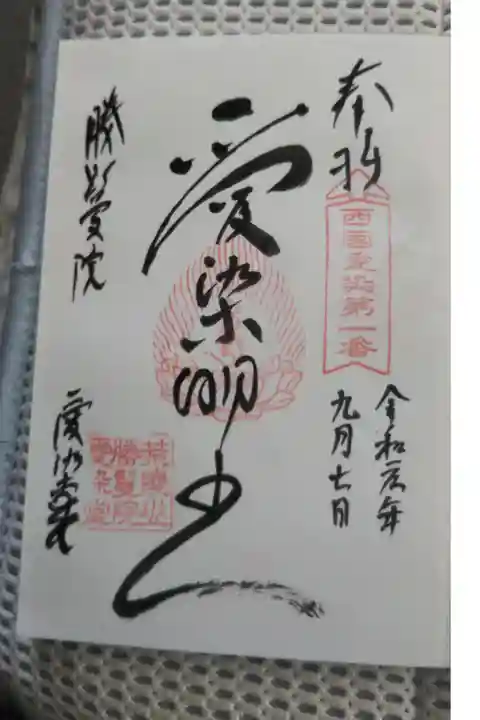 奉拝
西国愛染第一番
令和元年
九月七日
愛染明王
勝鬘院
愛染堂
荒陵山
勝鬘院
愛染堂